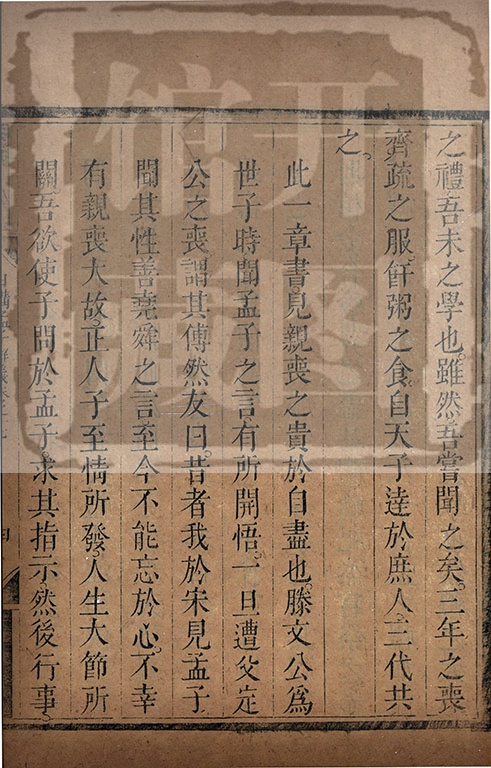 之禮吾未之學也。雖然吾嘗聞之矣。三年之喪
齊疏之服。飦粥之食。自天子達於庶人。三代共
之。
此一章書。見親喪之貴於自盡也。滕文公爲
世子時聞孟子之言有所開悟。一旦遭父定
公之喪。謂其傅然友曰。昔者我於宋見孟子
聞其性善堯舜之言至今不能忘於心。不幸
有親喪大故。正人子至情所發。人生大節所
關。吾欲使子問於孟子。求其指示然後行事。